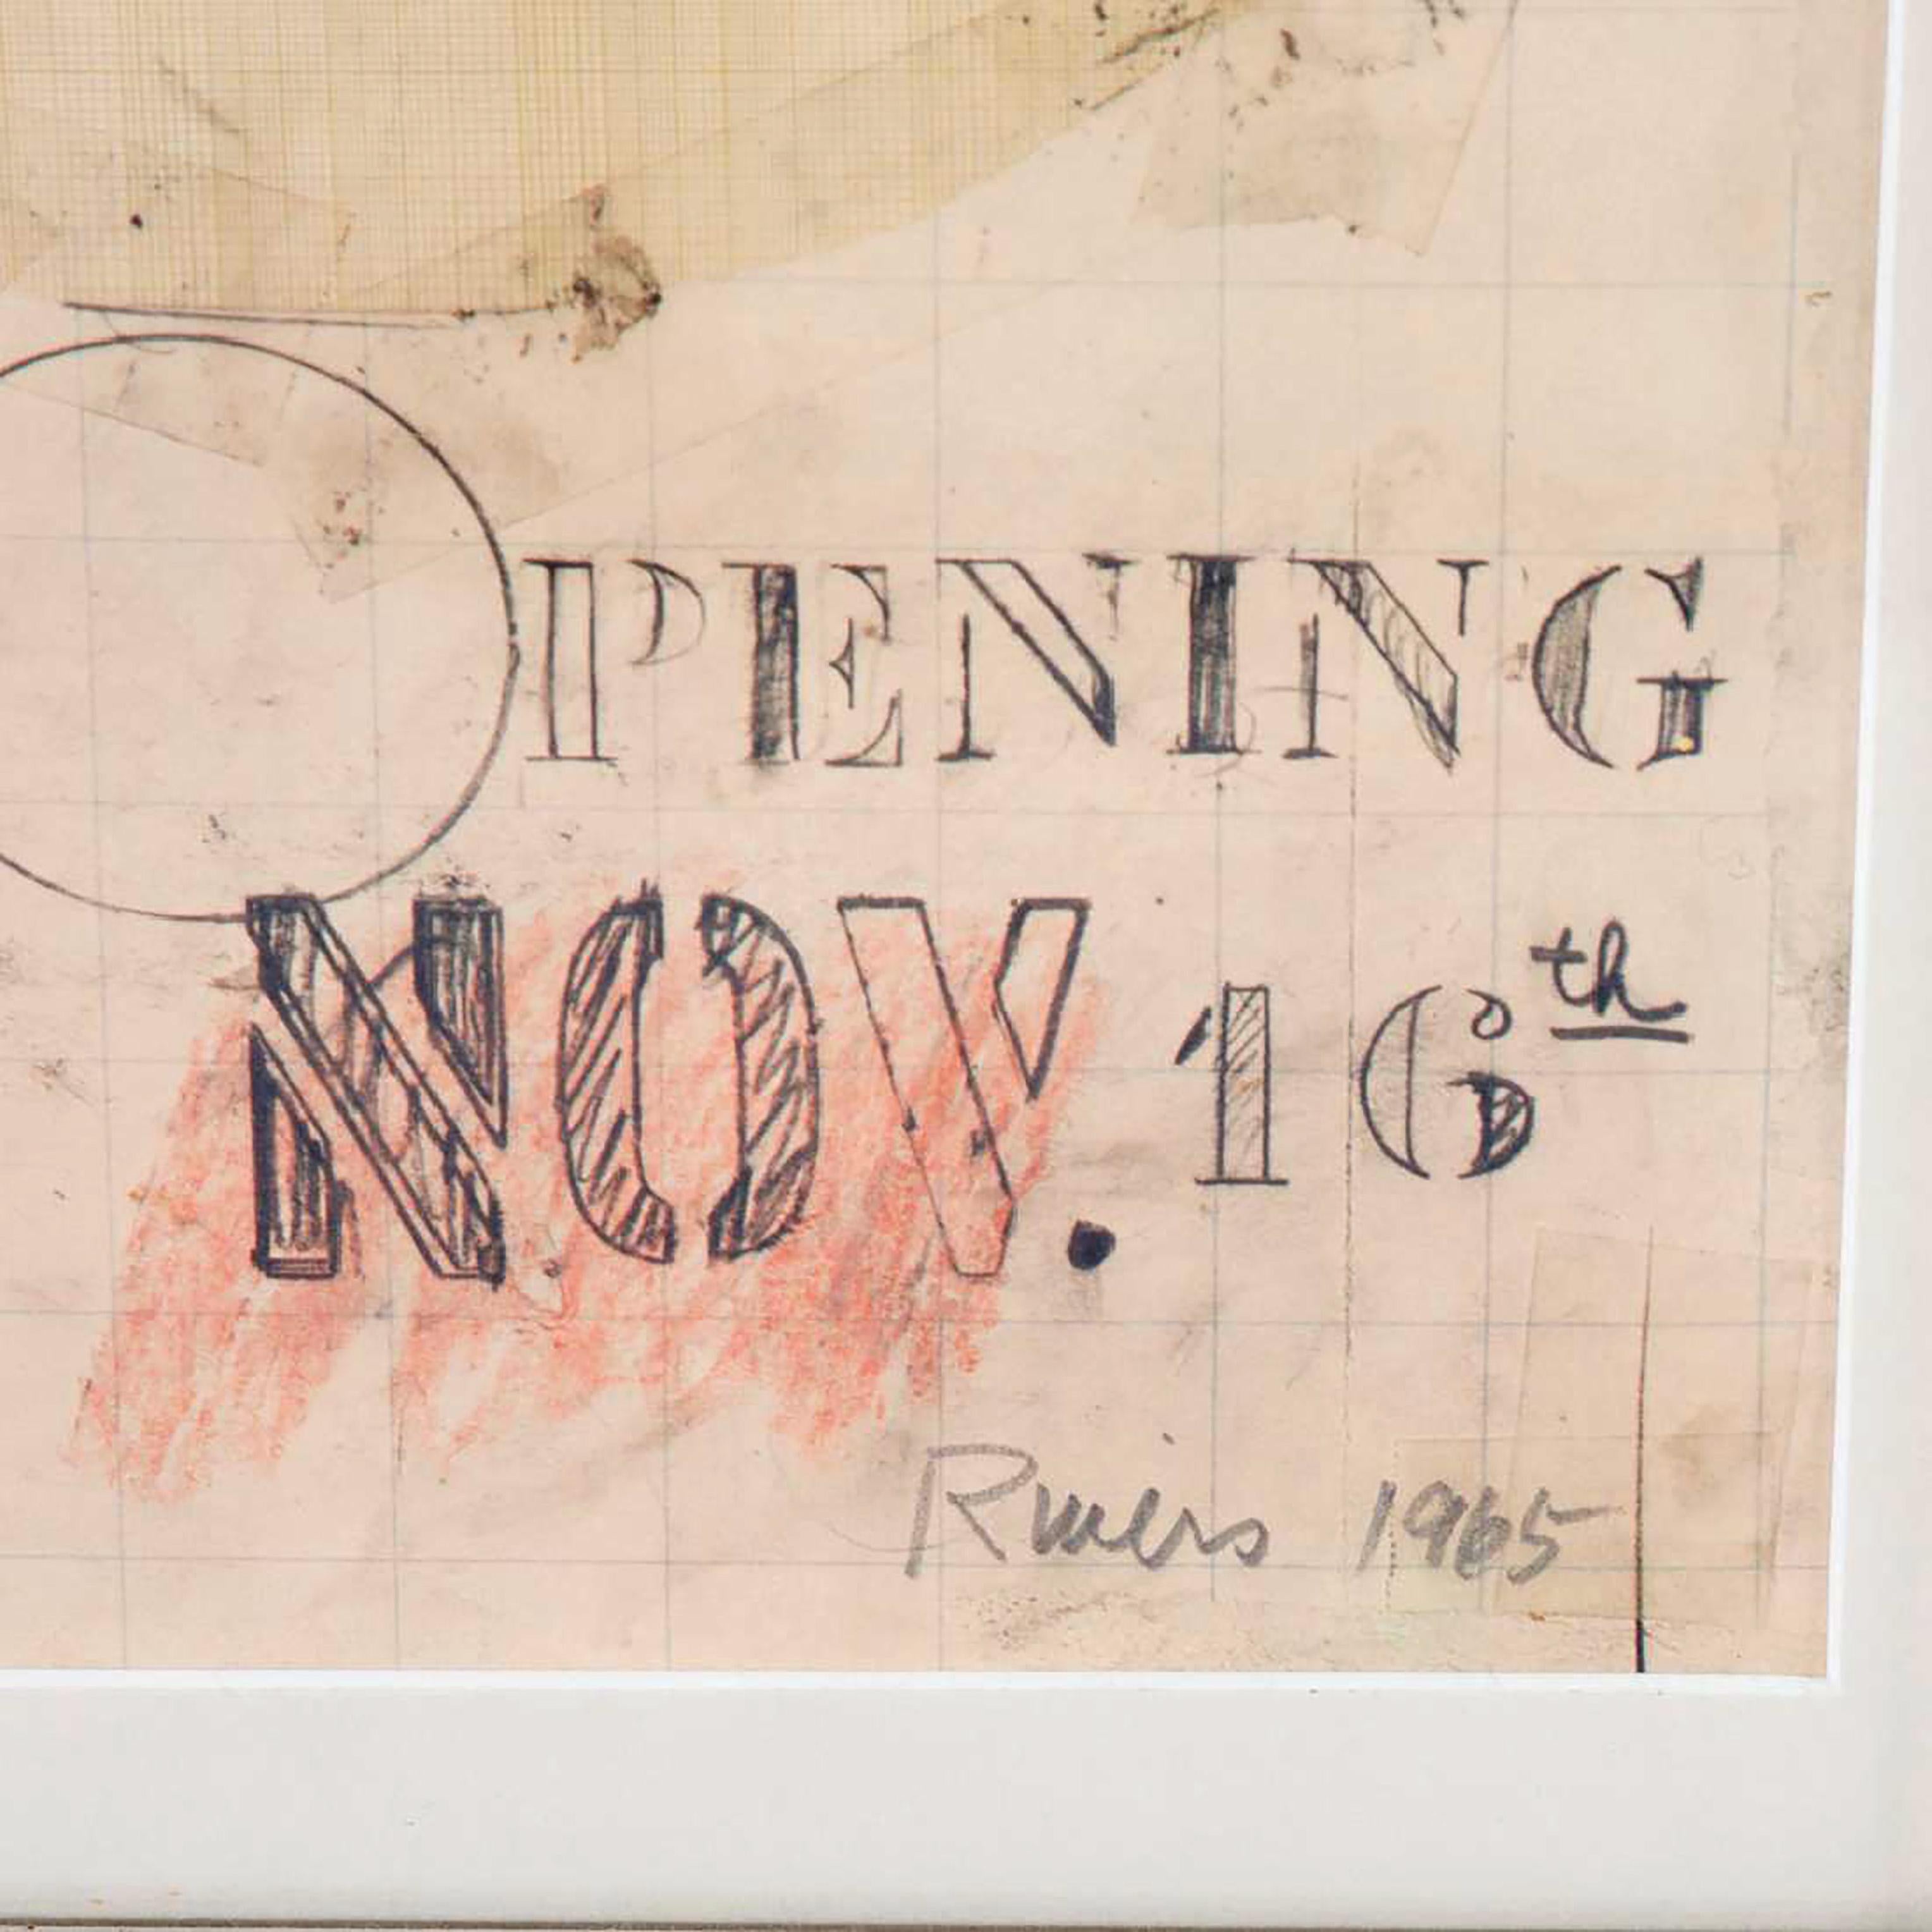 OPENING
NOV. 16th
Rivers 1965